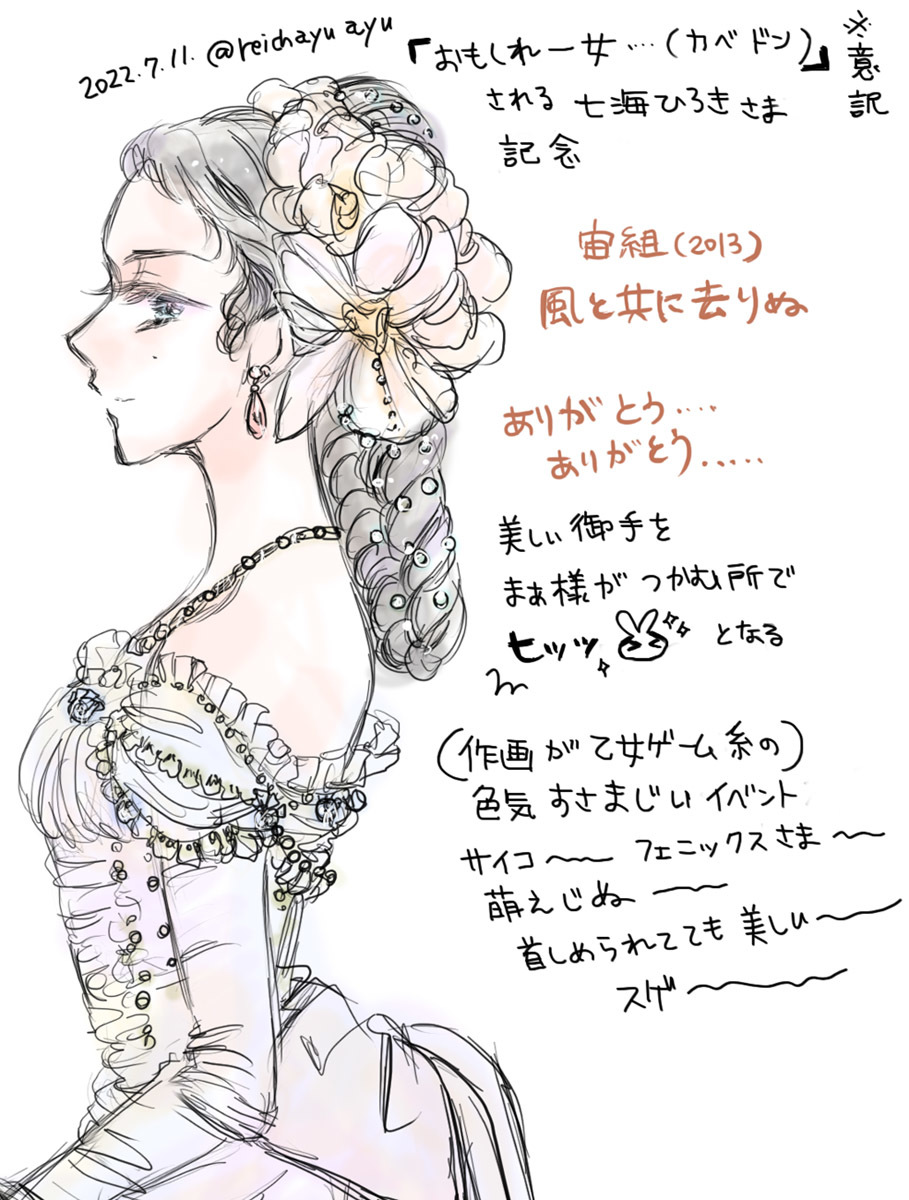 2022.7.11. @reichayuayu
「おもしれー女…(カベドン)」
※意訳
される 七海ひろきさま
記念
宙組(2013)
風と共に去りぬ
ありがとう‥‥
ありがとう‥‥‥
美しい御手を
まぁ様がつかむ所で
ヒッッ となる
(作画が乙女ゲーム系の)
色気すさまじいイベント
サイコ〜〜 フェニックスさま〜〜
萌えじぬ〜〜
首しめられてても美しい〜〜
スゲ〜〜〜